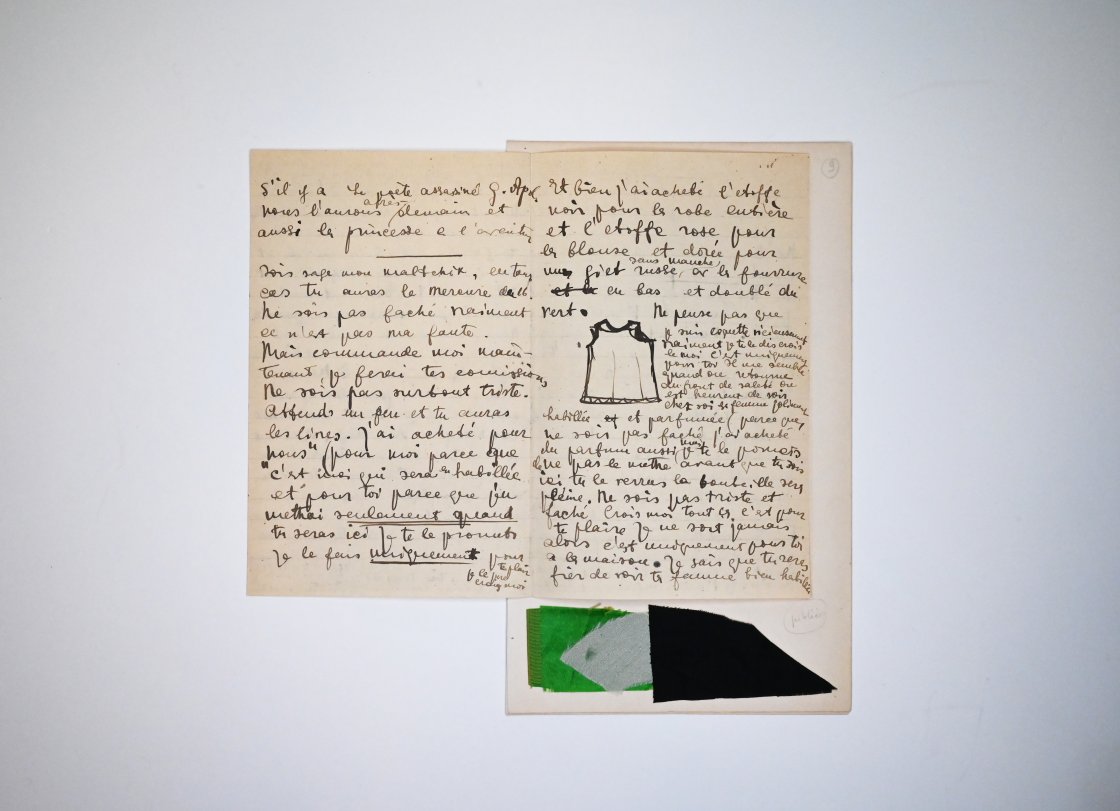 S'il y a le poète assassiné G. Apol
nous l'aurons après demain et
aussi la princesse
sois sage mon maltchik, en tous
cas tu auras le mercure
Ne sois pas faché vraiment
ce n'est pas ma faute.
Mais commande moi main-
tenant je ferai tes comissions
Ne sois pas surtout triste.
Attends un peu et tu auras
les livres. J'ai acheté pour
"nous" (pour moi parce que
c'est moi qui sera en habillée
et pour toi parce que j'en
methai seulement quand
tu seras ici) Je te le promets
Je le fais uniquement pour
te plair
je le
croiez moi
9
Et bien j'ai acheté l'etoffe
noir pour la robe entière
et l'etoffe rose pour
la blouse et dorée pour
un gilet russe, sans manche, la fourrure
en bas et doublé du
vert.
Ne pense pas que
je suis coquette
vraiment je te le dis crois
le moi c'est uniquement
pour toi Il me semble
quand on retourne
du front de saleté on
est heureux de voir
chez soi sa femme
habillée et parfumée (parce que,
ne sois pas faché j'ai acheté
du parfum aussi mais je te le promets
de ne pas le mettre avant que tu sois
ici tu le verras la bouteille sera
pleine. Ne sois pas triste et
faché Crois moi tout ça c'est pour
te plaire Je ne sort jamais
alors c'est uniquement pour toi
a la maison. Je sais que tu seras
fier de voir ta femme bien habillée